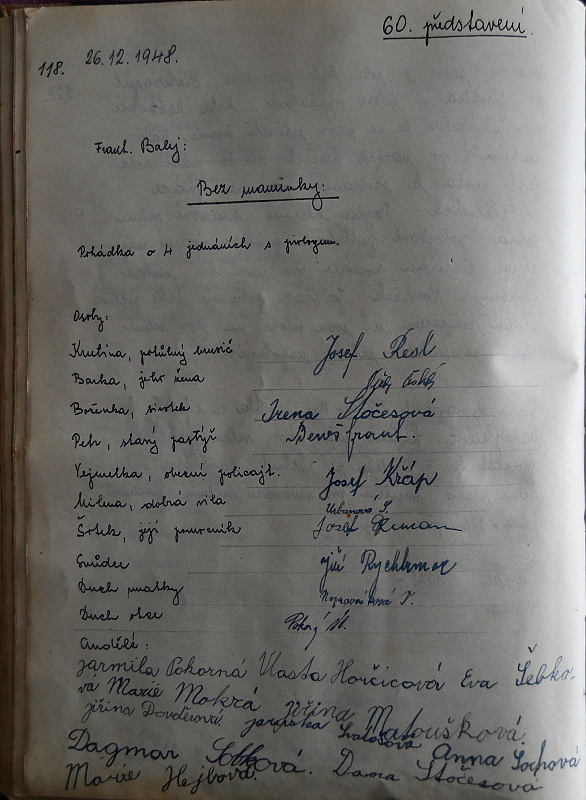 60. představení.
118. 26.12.1948.
Frant. Balej:
Bez maminky:
Pohádka o 4 jednáních s prologem.
Osoby:
Krutina, potulný brusič Josef Resl
Barka, jeho žena
Boženka, sirotek Irena Stočesová
Petr, starý pastýř Beneš frant.
Vejmelka, obecní policajt. Josef Kšáp
Milena, dobrá víla Urbanová
Šotek, její pomocník Josef
Sudce Jiří Rychlmoc
Duch matky
Duch otce Pokorý
Andělé:
Jarmila Pokorná Vlasta Horčicová Eva Šebko-
vá Marie Mokrá Jiřina Matoušková
Jiřina
Dagmar Anna Sochová
Marie Hejbová. Dana Stočesová